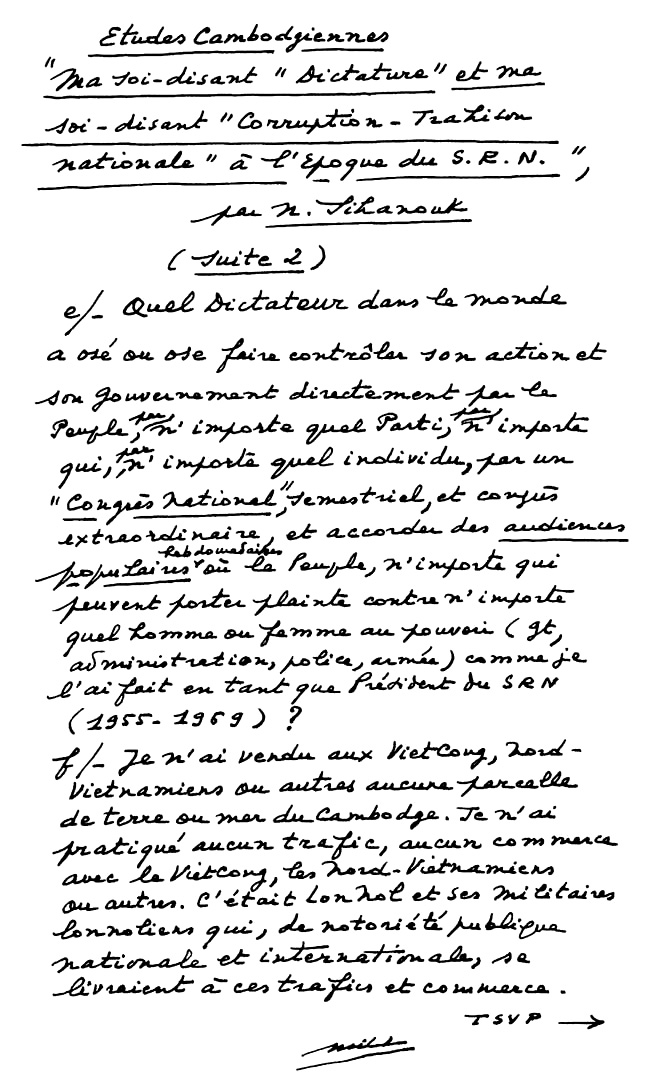 Etudes Cambodgiennes
"Ma soi-disant "Dictature" et ma
soi-disant "Corruption-Trahison
nationale" à l'Epoque du S.R.N.",
par N. Sihanouk
(Suite 2)
e/- Quel Dictateur dans le monde
a osé ou ose faire contrôler son action et
son gouvernement directement par le
Peuple, par n'importe quel Parti, par n'importe
qui, par n'importe quel individu, par un
"Congrès National", semestriel, et congrès
extraordinaire, et accorder des audiences
populaires hebdomadaires où le Peuple, n'importe qui
peuvent porter plainte contre n'importe
quel homme ou femme au pouvoir (gt,
administration, police, armée) comme je
l'ai fait en tant que Président du SRN
(1955-1969) ?
f/- Je n'ai vendu aux VietCong, Nord-
Vietnamiens ou autres aucune parcelle
de terre ou mer du Cambodge. Je n'ai
pratiqué aucun trafic, aucun commerce
avec le VietCong, les Nord-Vietnamiens
ou autres. C'était Lon Nol et ses militaires
lonnoliens qui, de notoriété publique
nationale et internationale, se
livraient à ces trafics et commerce.
TSVP →